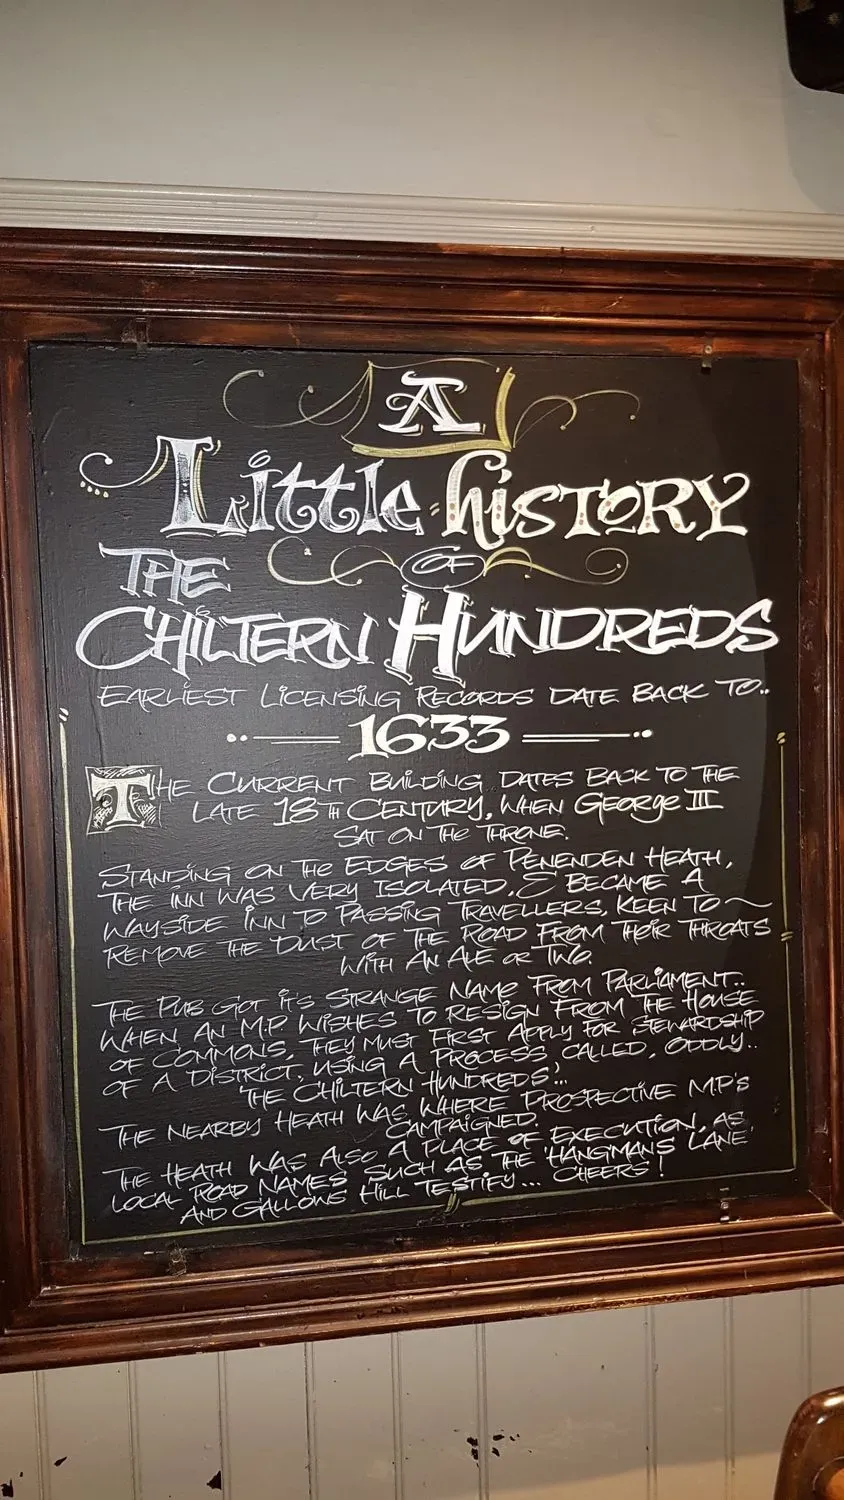 A
Little history
THE OF
CHILTERN HUNDREDS
EARLIEST LICENSING RECORDS DATE BACK TO..
1633
THE CURRENT BUILDING DATES BACK TO THE
LATE 18TH CENTURY, WHEN George III
SAT ON THE THRONE.
STANDING ON THE EDGES OF PENENDEN HEATH,
THE INN WAS VERY ISOLATED, & BECAME A
WAYSIDE INN TO PASSING TRAVELLERS, KEEN TO ~
REMOVE THE DUST OF THE ROAD FROM THEIR THROATS
WITH AN ALE OR TWO.
THE PUB GOT IT'S STRANGE NAME FROM PARLIAMENT..
WHEN AN M.P WISHES TO RESIGN FROM THE HOUSE
OF COMMONS, THEY MUST FIRST APPLY FOR STEWARDSHIP
OF A DISTRICT, USING A PROCESS CALLED, ODDLY..
'THE CHILTERN HUNDREDS'...
THE NEARBY HEATH WAS WHERE PROSPECTIVE M.P'S
CAMPAIGNED.
THE HEATH WAS ALSO A PLACE OF EXECUTION, AS
LOCAL ROAD NAMES SUCH AS THE 'HANGMANS LANE
AND GALLOWS HILL TESTIFY... CHEERS!